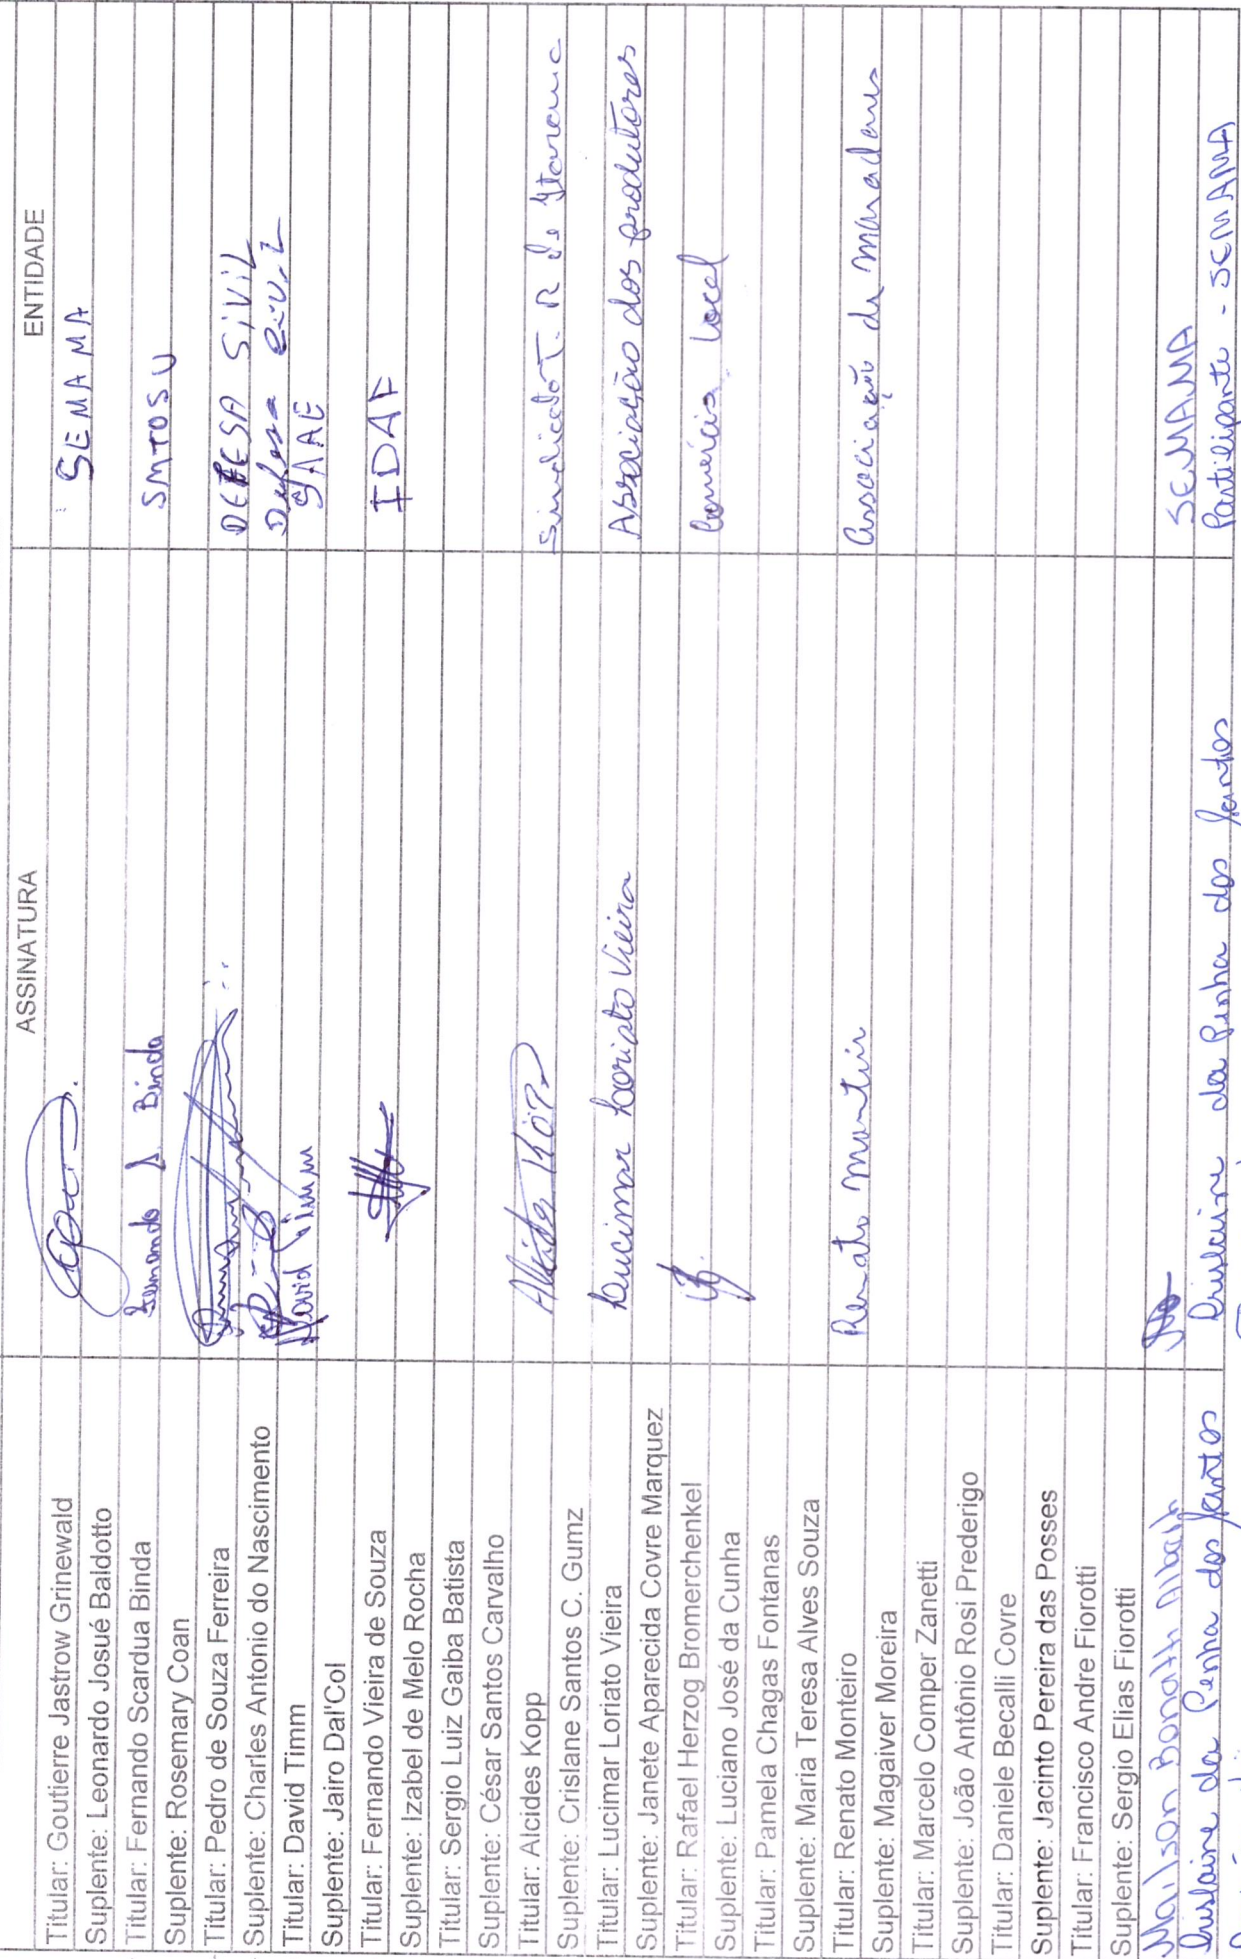 ASSINATURA ENTIDADE
Titular: Goutierre Jastrow Grinewald SEMAMA
Suplente: Leonardo Josué Baldotto
Titular: Fernando Scardua Binda Fernando S. Binda SMTOSU
Suplente: Rosemary Coan
Titular: Pedro de Souza Ferreira DEFESA SiViL
Suplente: Charles Antonio do Nascimento Defesa civil
Titular: David Timm David Timm SAAE
Suplente: Jairo Dal'Col
Titular: Fernando Vieira de Souza IDAF
Suplente: Izabel de Melo Rocha
Titular: Sergio Luiz Gaiba Batista
Suplente: César Santos Carvalho
Titular: Alcides Kopp Alcides Köpp Sindicato T. R de Itarana
Suplente: Crislane Santos C. Gumz
Titular: Lucimar Loriato Vieira Lucimar Loriato Vieira Associação dos produtores
Suplente: Janete Aparecida Covre Marquez
Titular: Rafael Herzog Bromerchenkel Comércio local
Suplente: Luciano José da Cunha
Titular: Pamela Chagas Fontanas
Suplente: Maria Teresa Alves Souza
Titular: Renato Monteiro Renato Monteiro Associação de moradores
Suplente: Magaiver Moreira
Titular: Marcelo Comper Zanetti
Suplente: João Antônio Rosi Prederigo
Titular: Daniele Becalli Covre
Suplente: Jacinto Pereira das Posses
Titular: Francisco Andre Fiorotti
Suplente: Sergio Elias Fiorotti
Mailson Bonatti SEMAMA
da Penha dos Santos da Penha dos Santos Participante - SEMAMA